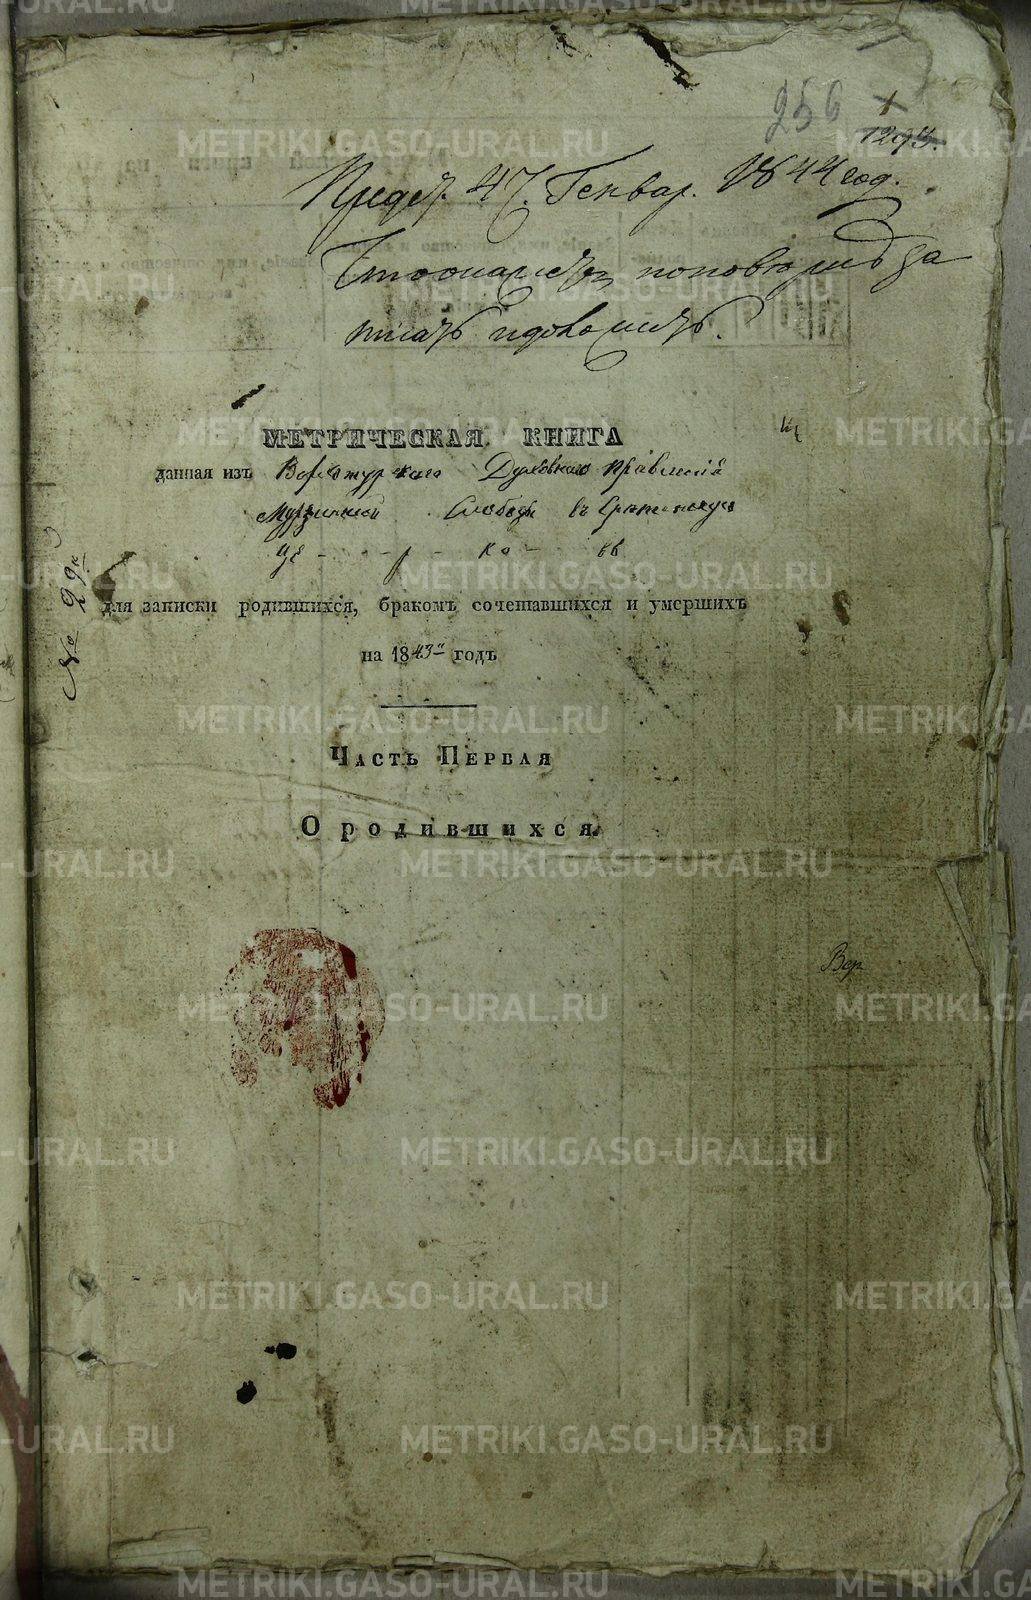 256
1293.
Генвар. 1844 год.
писать и доложить.
МЕТРИЧЕСКАЯ КНИГА
данная изъ Верхотурскаго Духовнаго Правленія
Мурзинской Слободы въ Срѣтенскую
це - р - ко - вь
№ 29й
для записки родившихся, бракомъ сочетавшихся и умершихъ
на 1843й годъ
Часть Первая
О родившихся.
Вер
METRIKI.GASO-URAL.RU